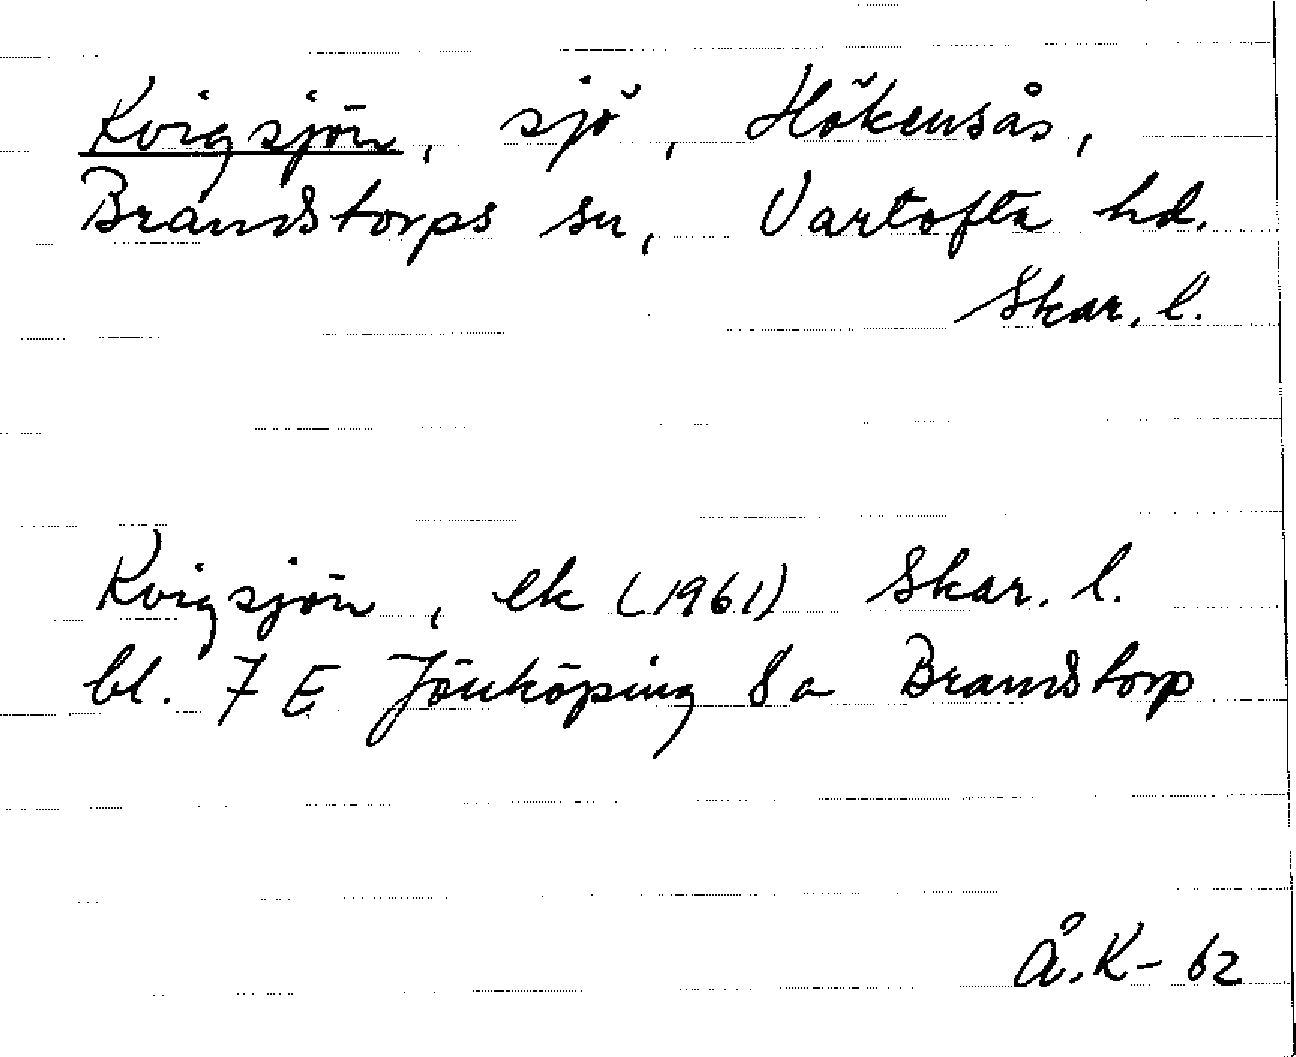 Kvigsjön, sjö, Hökensås,
Brandstorps sn, Vartofta hd.
Skar. l.
Kvigsjön, ek (1961) Skar. l.
bl. 7 E Jönköping 8a Brandstorp
Å.K-62